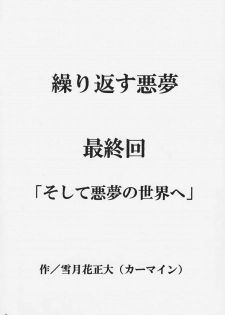 繰り返す悪夢
最終回
「そして悪夢の世界へ」
作／雪月花正大（カーマイン）